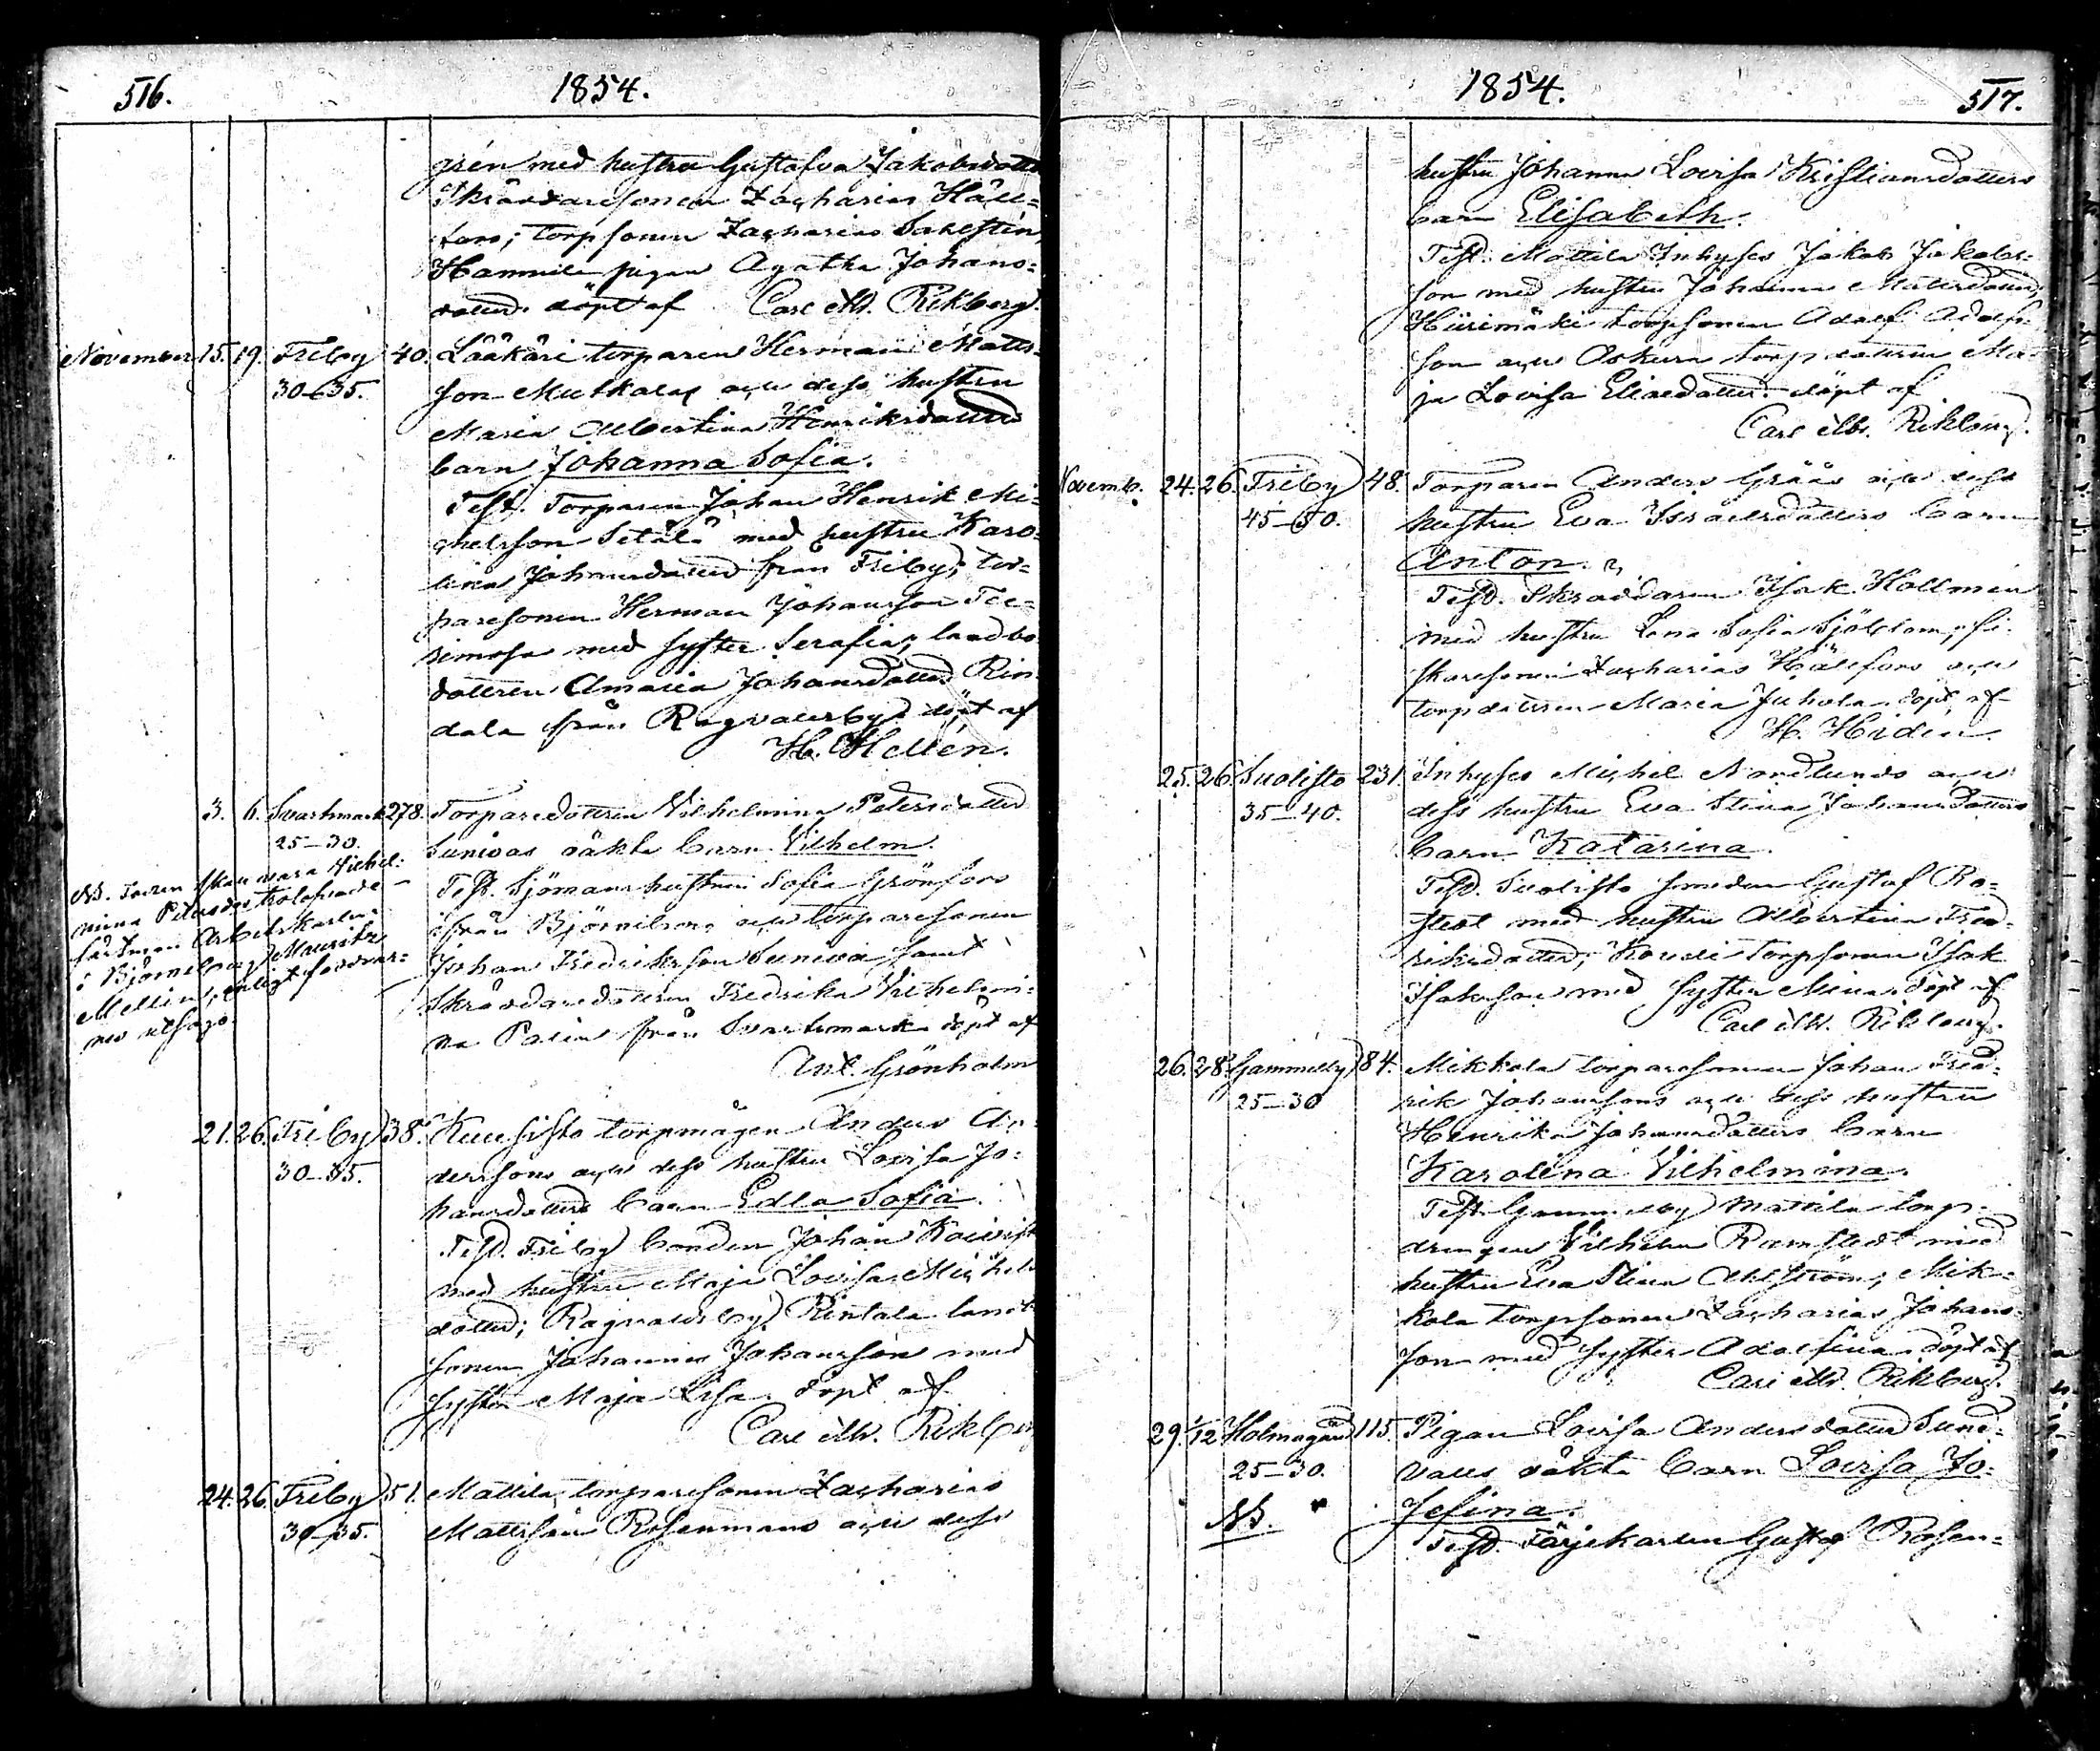 516.
1854.
grén med hustru Gustafva Jakobsdotter
Skräddaresonen Zacharias Häll=
fors; torpsonen Zacharias Sahlstén,
Hannula pigan Agatha Johans=
dotter. döpt af Carl M. Rikberg.
November 15. 19. Friby 40. Lääkäri torparen Herman Matts=
30-35. son Mutkalas och dess hustru
Maria Albertina Henriksdotters
barn Johanna Sofia.
Test. Torparen Johan Henrik Mi=
chelsson Setälä med hustru Karo=
lina Johansdotter från Friby; tor=
paresonen Herman Johansson Tee=
rimosa med syster Serafia; landbo
dottren Amalia Johansdotter Rin
dala från Ragvalsby. döpt af
H. Hellén.
3. 6. Svartsmark 278. Torparedottren Vilhelmina Petersdotter
25-30. Sunivas oäkta barn Vilhelm.
Test. Sjömans hustrun Sofia Grönfors
ifrån Björneborg och torparesonen
Johan Fredriksson Suniva samt
Skräddaredottren Fredrika Vilhelmi=
na Palin från Svartsmark. döpt af
Ant. Grönholm
NB. skall vara Vilhel:
mina Petersdr
fästman Arbetskarlen
i Björneborg Mauritz
Mellin, enligt
nes utsago.
21. 26. Friby 38. Kuusisto torpmågen Anders An=
30-35. derssons och dess hustru Lovisa Jo=
hansdotters barn Edla Sofia.
Test. Friby bonden Johan Koivist
med hustru Maja Lovisa Michels
dotter; Ragvalsby Rintala landb
sonen Johannes Johansson med
syster Maja Lisa. döpt af
Carl M. Rikberg
24. 26. Friby 51. Mattila torparesonen Zacharias
30-35. Mattsson Rosenmans och dess
1854.
517.
hustru Johanna Lovisa Kristiansdotters
barn Elisabeth.
Test. Mattila Inhyses Jakob Jakobs=
son med hustru Johanna Mattsdotter,
Hiirimäki torpsonen Adolf Adolfs=
son och Oskura torpdottren Ma=
ja Lovisa Eliasdotter. döpt af
Carl M. Rikberg.
Novemb. 24. 26. Friby 48. Torparen Anders Gråås och dess
45-50. hustru Eva Israelsdotters barn
Anton.
Test. Skräddaren Isak Hollmén
med hustru Lena Sofia Sjöblom; fi=
skaresonen Zacharias Hällfors och
torpdottren Maria Juhola. döpt af
H. Hiden.
25. 26. Suolisto 231. Inhyses Michel Nordlunds och
35-40. dess hustru Eva Stina Johansdotters
barn Katarina.
Test. Suolisto smeden Gustaf Ro=
stedt med hustru Albertina Fred=
riksdotter; Koudi torpsonen Isak
Isaksson med syster Mina. döpt af
Carl M. Rikberg.
26. 28. Gammelby 84. Mikkola torparesonen Johan Fred=
25-30 rik Johanssons och dess hustru
Henrika Johansdotters barn
Karolina Vilhelmina.
Test. Gammelby Mattila torp=
drengen Vilhelm Ramstedt med
hustru Eva Stina Ahlström; Mik=
kola torpsonen Zacharias Johans=
son med syster Adolfina. döpt af
Carl M. Rikberg.
29. 1/12 Holmagård 115. Pigan Lovisa Andersdotter Sund=
25-30. valls oäkta barn Lovisa Jo=
NB. sefina.
Test. Färjekarlen Gustaf Rosen=